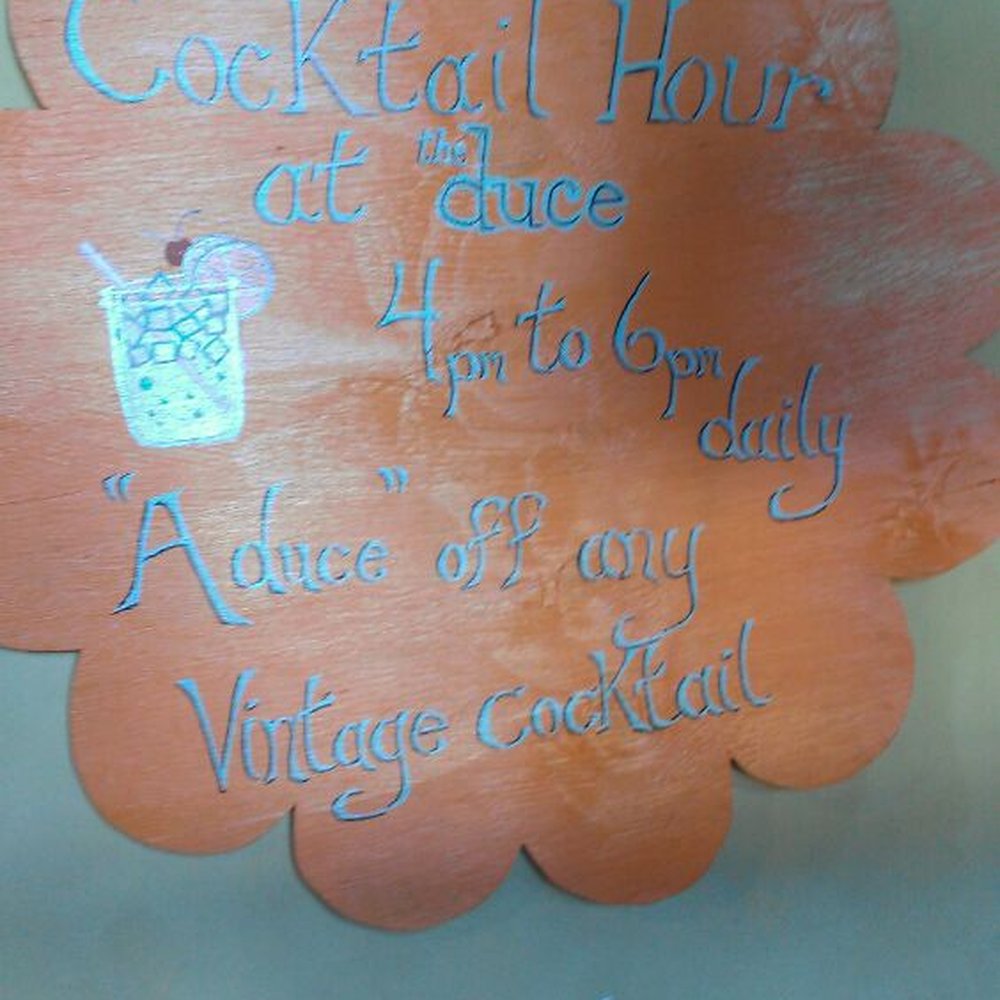 Cocktail Hour
at the duce
4pm to 6pm
daily
"A duce" off any
Vintage cocktail